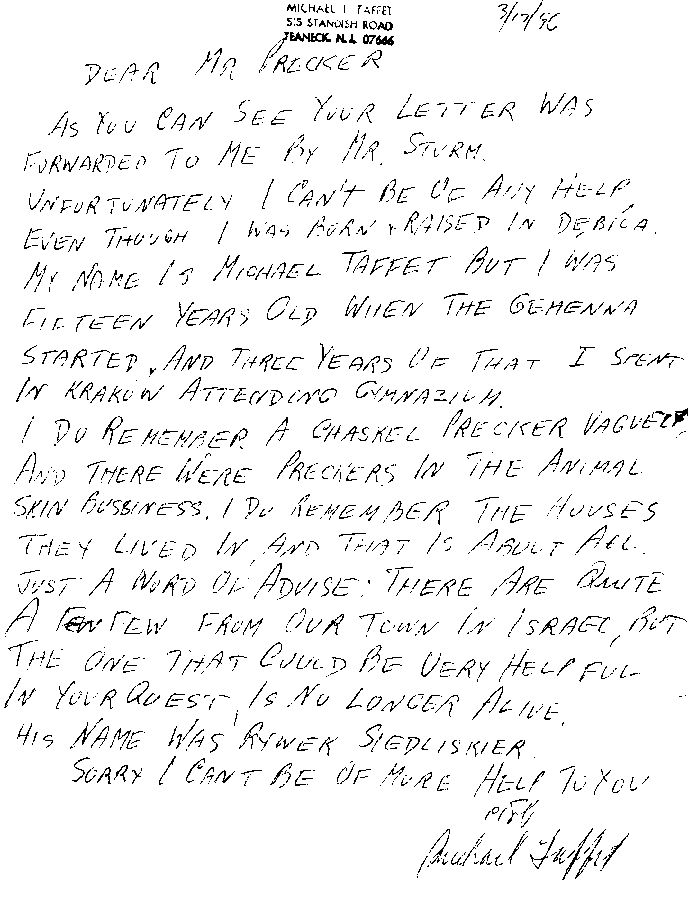 MICHAEL I. TAFFET
515 STANDISH ROAD
TEANECK, N.J. 07666
3/17/86
DEAR MR PRECKER
AS YOU CAN SEE YOUR LETTER WAS
FORWARDED TO ME BY MR. STURM.
UNFORTUNATELY I CAN'T BE OF ANY HELP,
EVEN THOUGH I WAS BORN & RAISED IN DĘBICA.
MY NAME IS MICHAEL TAFFET BUT I WAS
FIFTEEN YEARS OLD WHEN THE GEHENNA
STARTED, AND THREE YEARS OF THAT I SPENT
IN KRAKÓW ATTENDING GYMNAZIUM.
I DO REMEMBER A CHASKEL PRECKER VAGUELY,
AND THERE WERE PRECKERS IN THE ANIMAL
SKIN BUSSINESS. I DO REMEMBER THE HOUSES
THEY LIVED IN, AND THAT IS ABOUT ALL.
JUST A WORD OF ADVISE: THERE ARE QUITE
A FEW FROM OUR TOWN IN ISRAEL, BUT
THE ONE THAT COULD BE VERY HELPFUL
IN YOUR QUEST, IS NO LONGER ALIVE.
HIS NAME WAS RYWEK SIEDLISKIER.
SORRY I CANT BE OF MORE HELP TO YOU
Michael Taffet